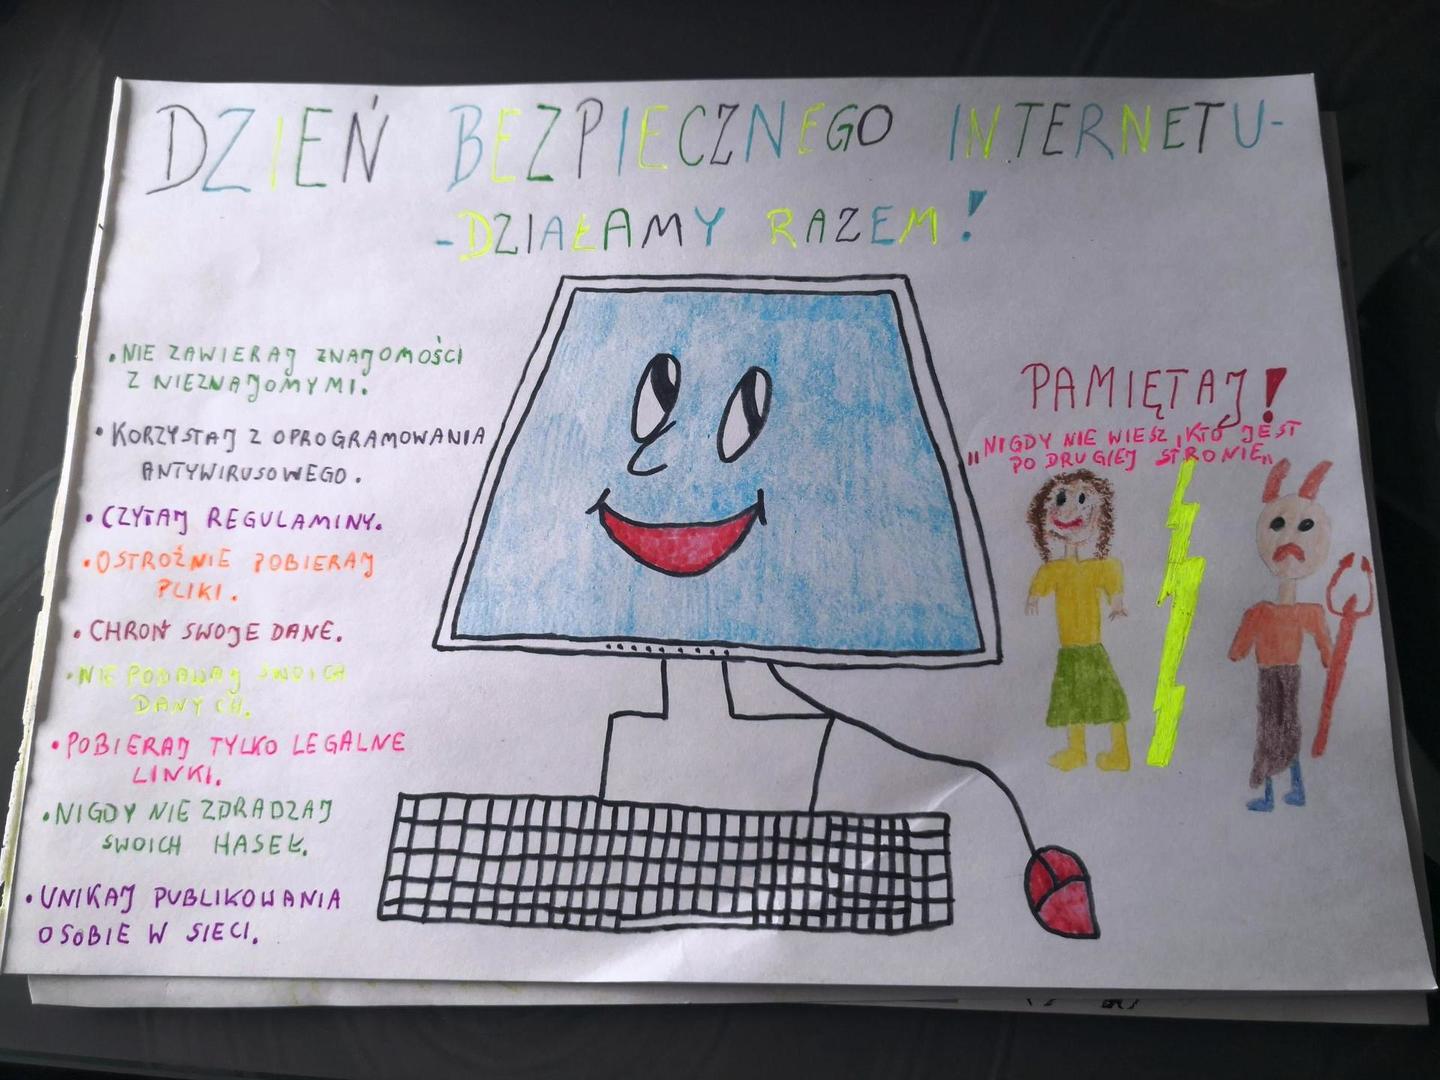 DZIEŃ BEZPIECZNEGO INTERNETU-
-DZIAŁAMY RAZEM!
• NIE ZAWIERAJ ZNAJOMOŚCI
Z NIEZNAJOMYMI.
• KORZYSTAJ Z OPROGRAMOWANIA
ANTYWIRUSOWEGO.
• CZYTAJ REGULAMINY.
• OSTROŻNIE POBIERAJ
PLIKI.
• CHROŃ SWOJE DANE.
• NIE PODAWAJ SWOICH
DANYCH.
• POBIERAJ TYLKO LEGALNE
LINKI.
• NIGDY NIE ZDRADZAJ
SWOICH HASEŁ.
• UNIKAJ PUBLIKOWANIA
O SOBIE W SIECI.
PAMIĘTAJ!
"NIGDY NIE WIESZ, KTO JEST
PO DRUGIEJ STRONIE"